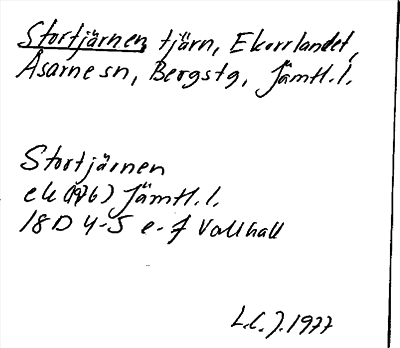 Stortjärnen, tjärn, Ekorrlandet,
Åsarne sn, Bergs tg, Jämtl. l.
Stortjärnen
ek (1976) Jämtl. l.
18D 4-5 e-f Vallhall
L.C.J. 1977